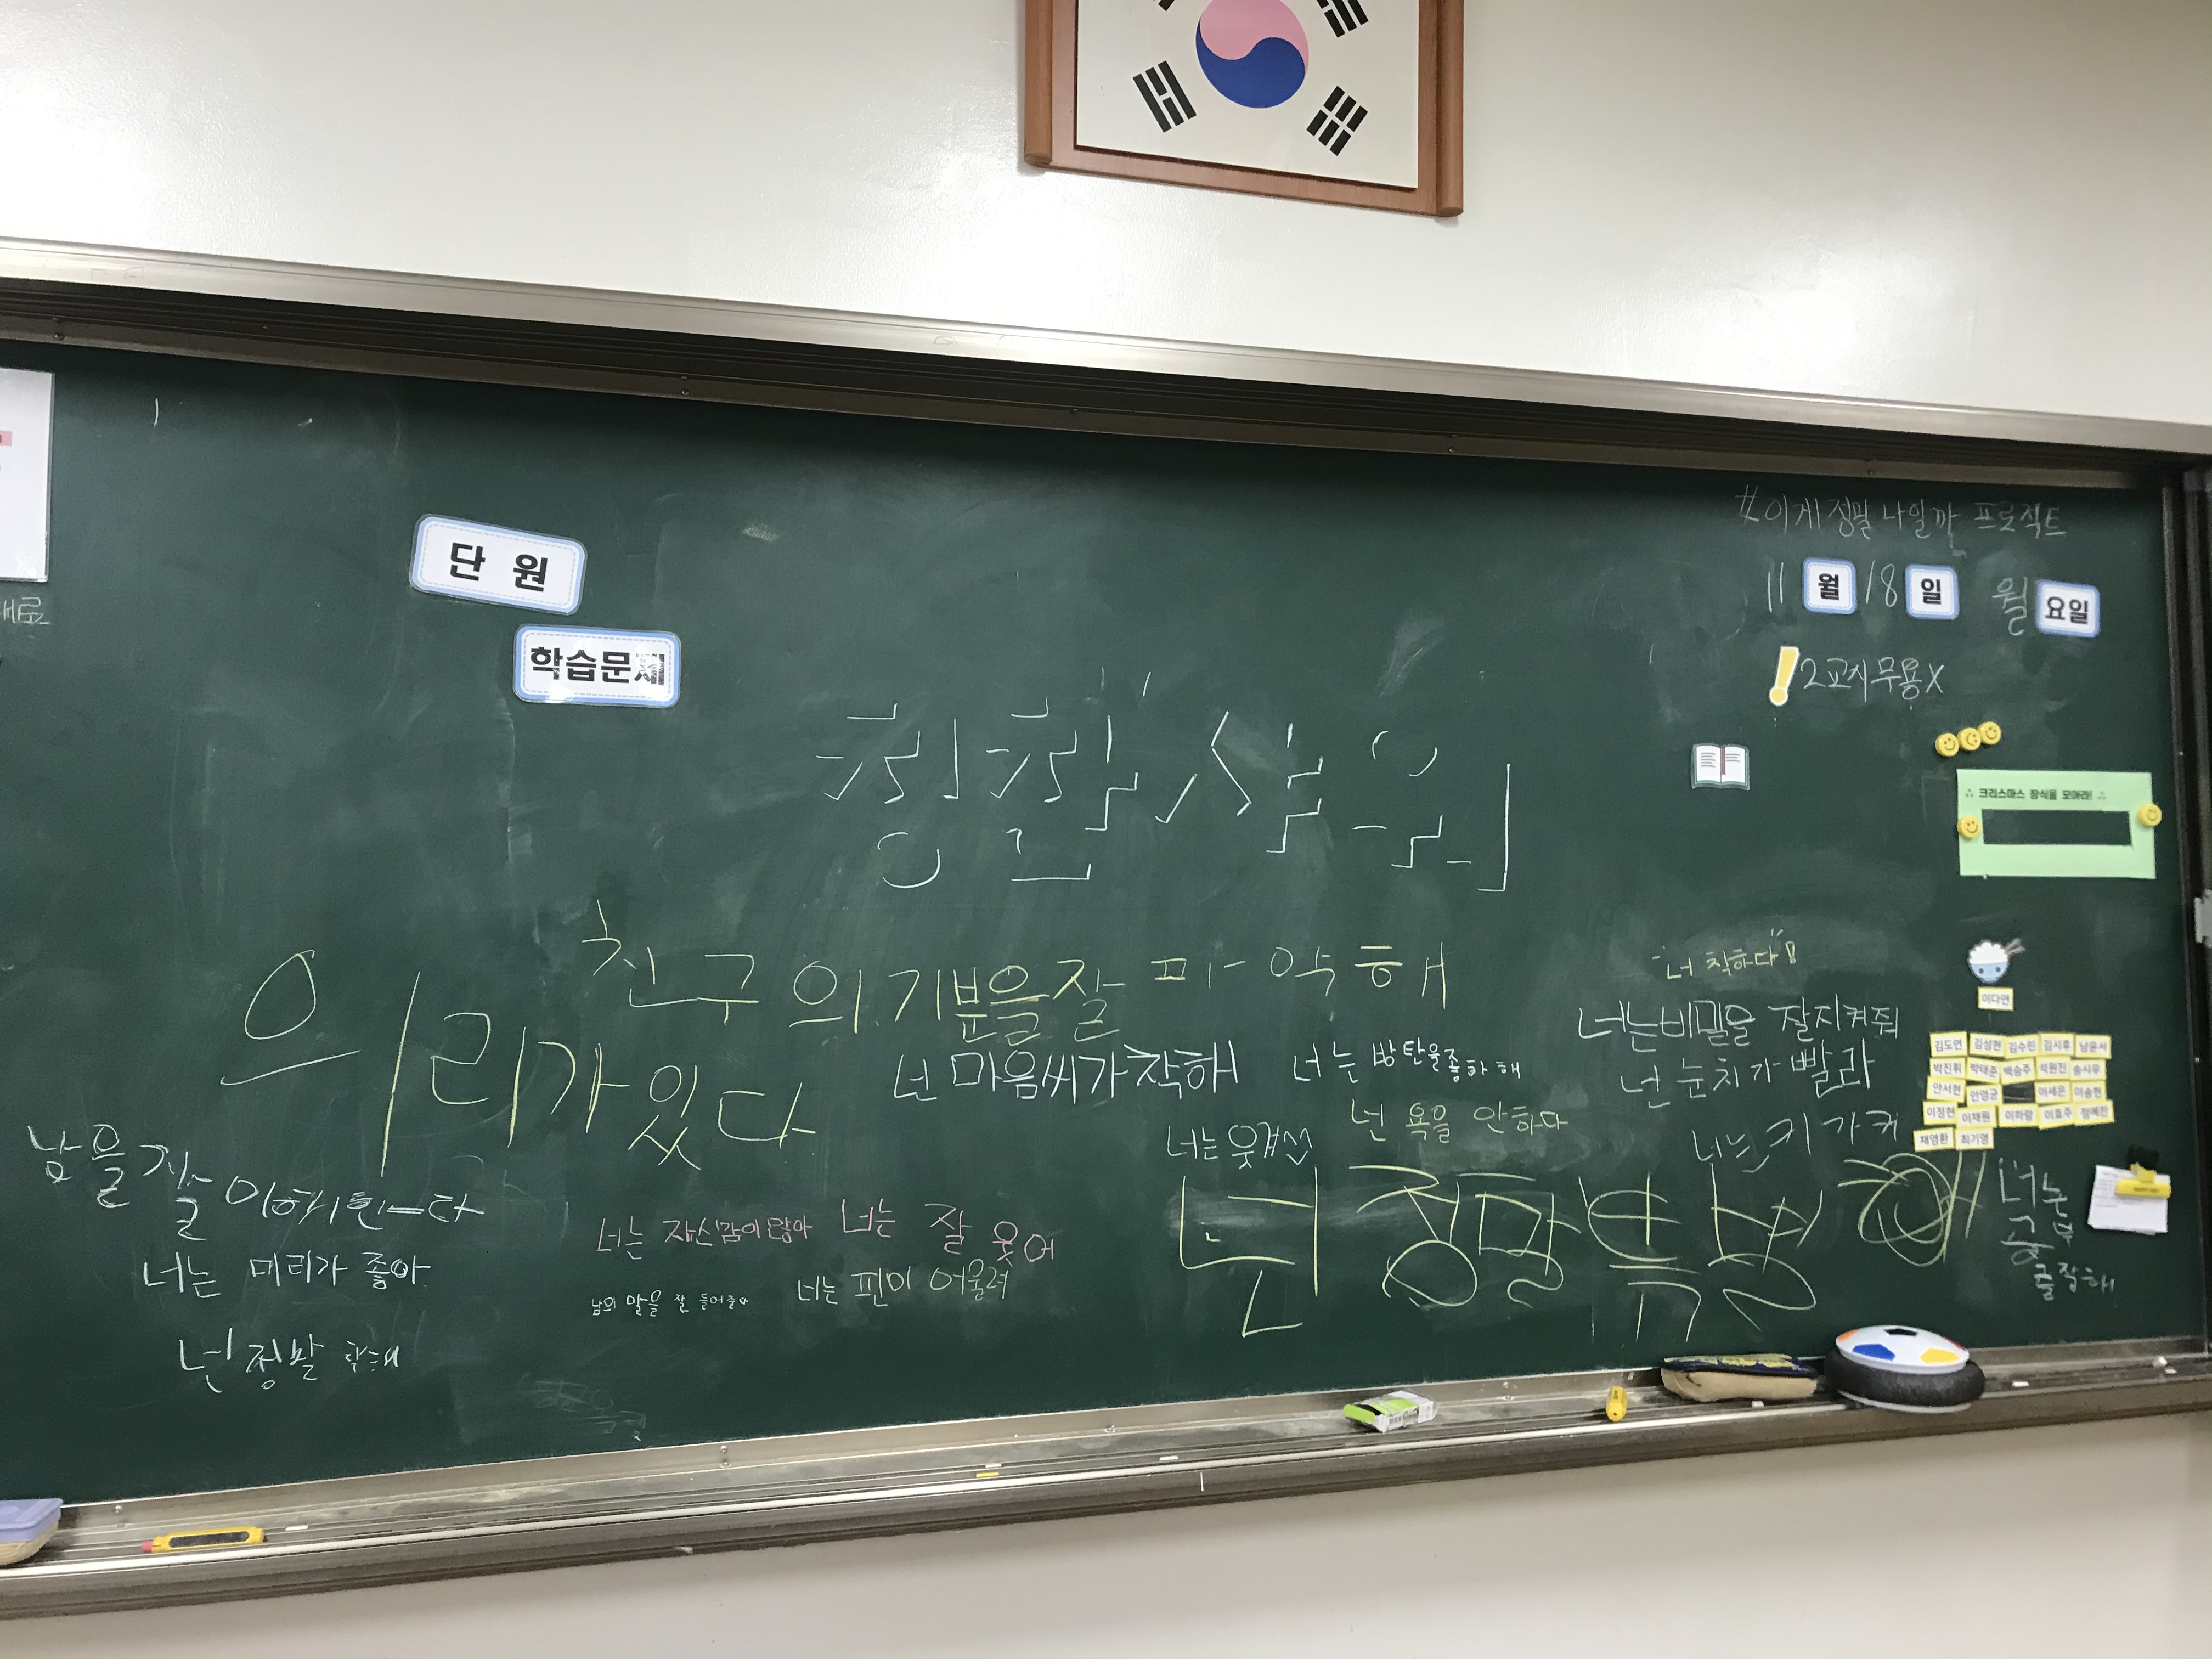 #이게 정말 나일까 프로젝트
11월 18일 월요일
2교시 무용X
단원
학습문제
칭찬샤워
크리스마스 장식을 모아라!
친구의 기분을 잘 파악해
의리가 있다
"너 착하다"!
너는 비밀을 잘 지켜줘
넌 눈치가 빨라
너는 키가 커
넌 마음씨가 착해
너는 방탄을 좋아해
넌 욕을 안하다
너는 웃겨
남을 잘 이해한다
너는 머리가 좋아
넌 정말 착해
너는 자신감이 많아
너는 잘 웃어
남의 말을 잘 들어줘
너는 핀이 어울려
너는 공부 잘해
이다연
김도연 김성현 김수린 김시후 남윤서
박진휘 박태준 백승주 석원진 송시우
안서현 안영균 이세은 이승현
이정현 이재원 이하랑 이효주 정예진
채영환 최기영